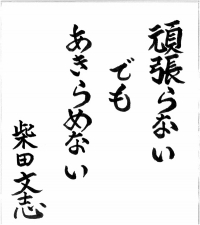 頑張らない
でも
あきらめない
柴田文志